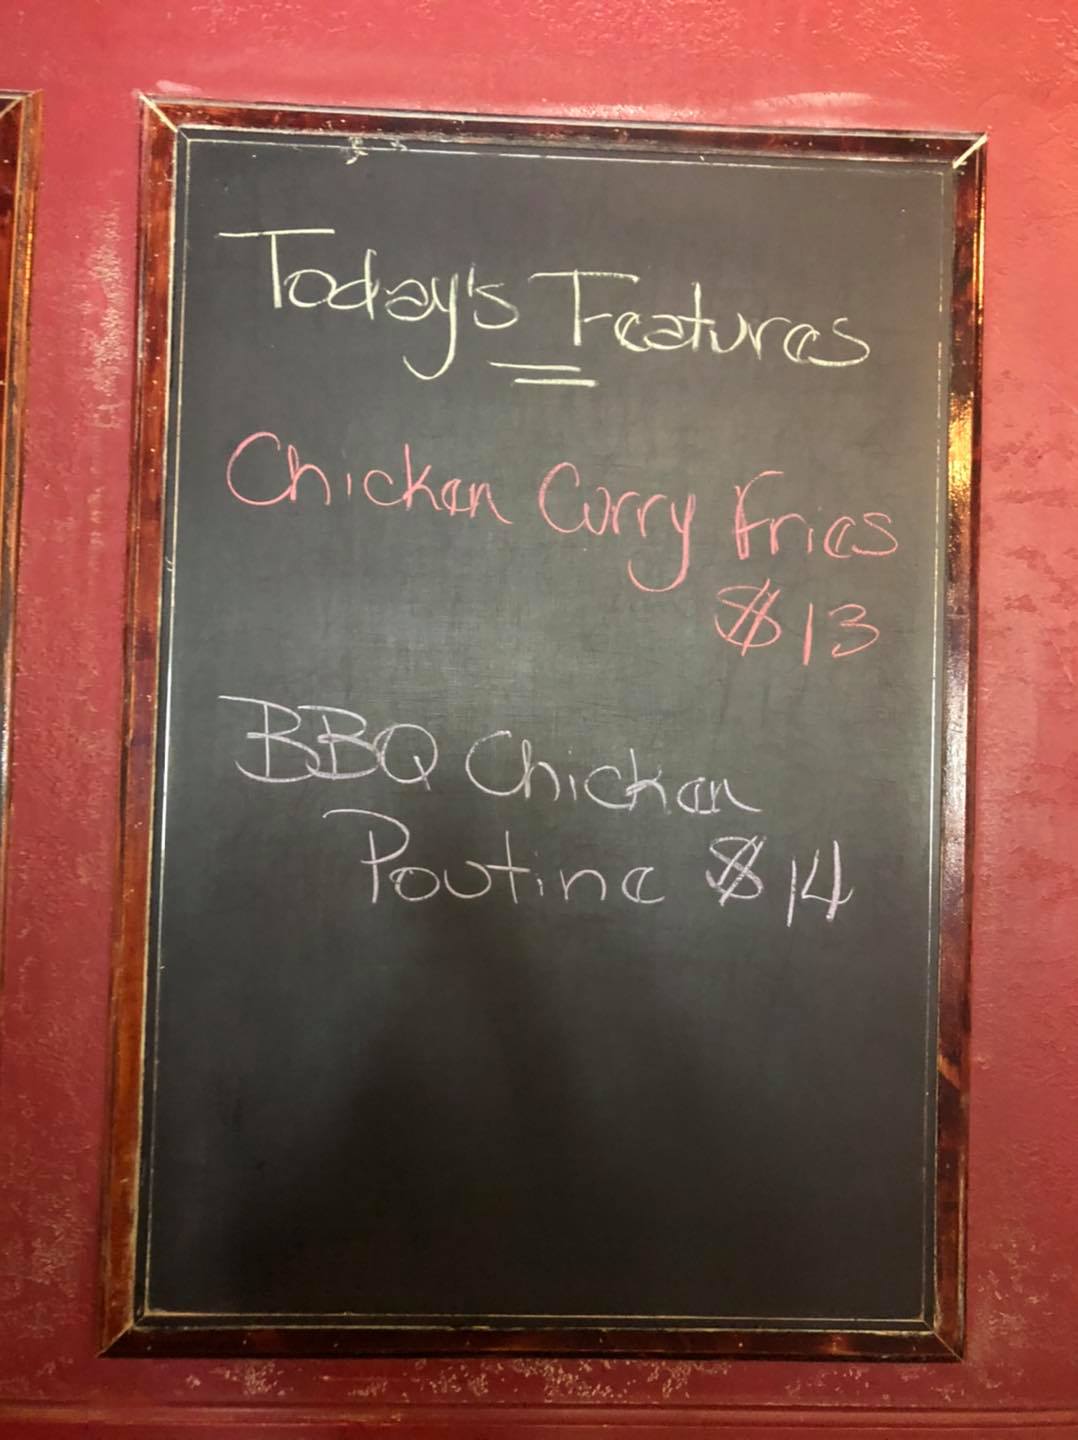 Today's Features
Chicken Curry Fries
$13
BBQ Chicken
Poutine $14